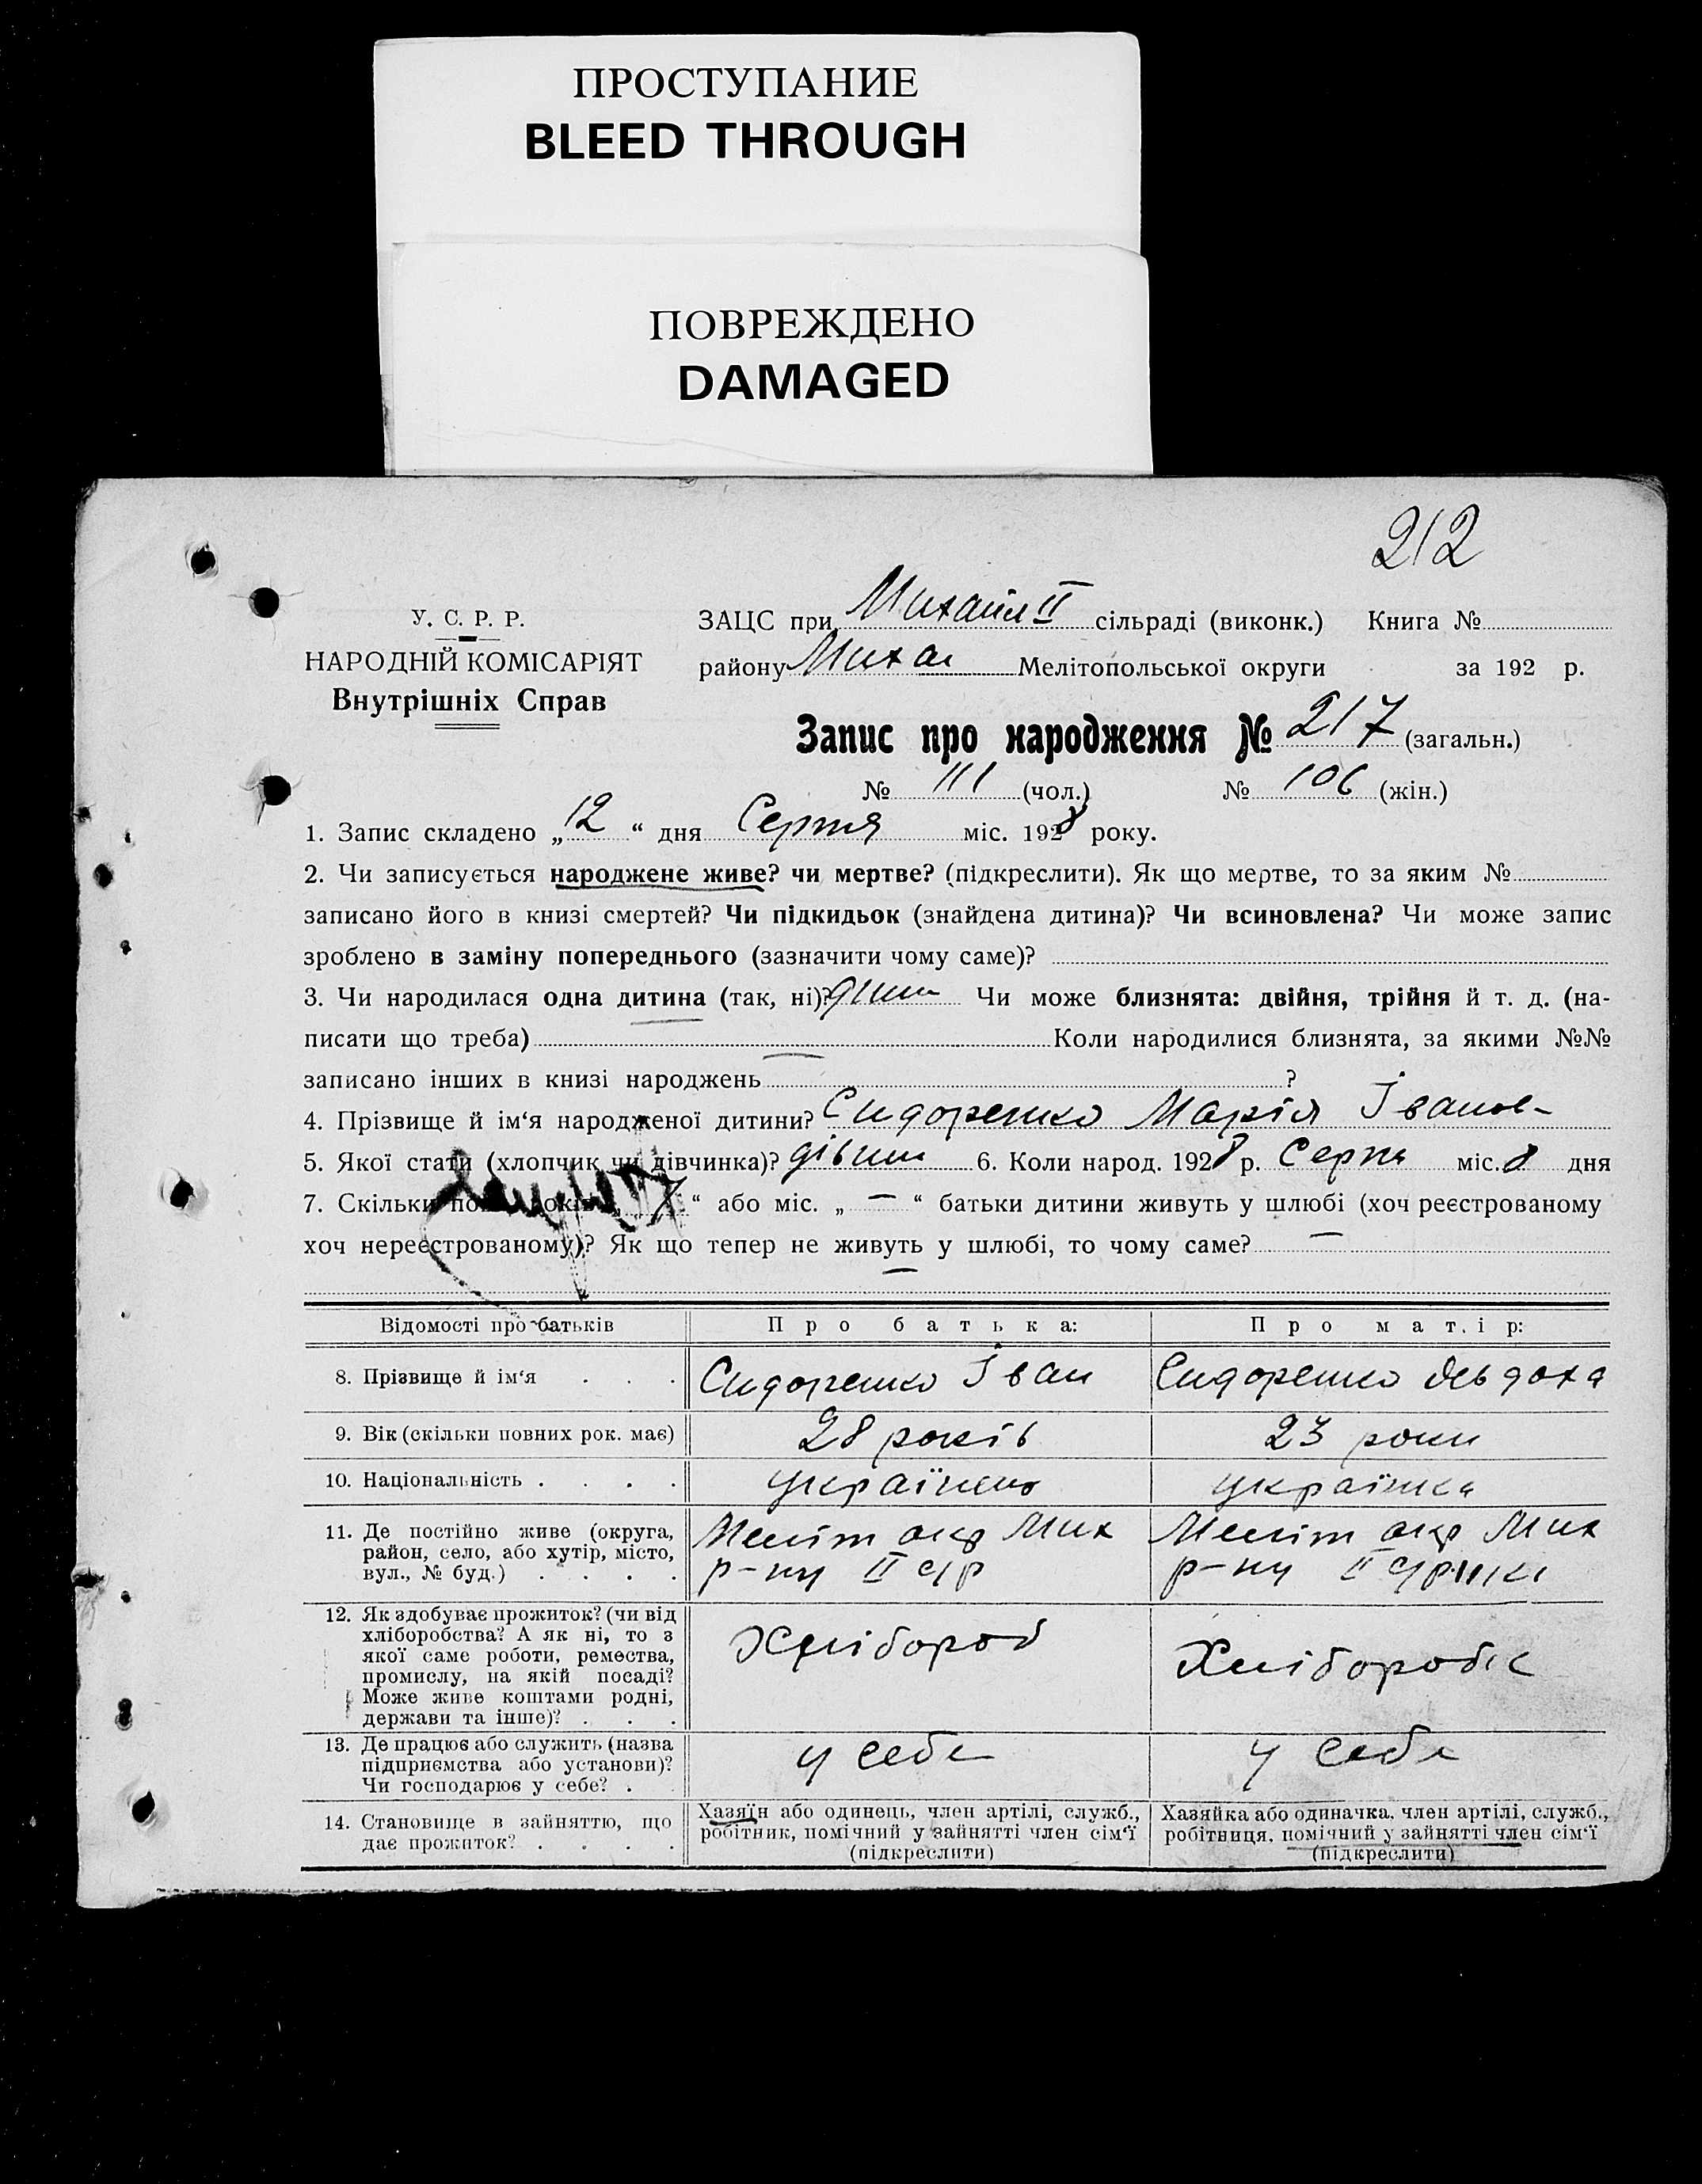 ПРОСТУПАНИЕ
BLEED THROUGH
ПОВРЕЖДЕНО
DAMAGED
212
У. С. Р. Р.
НАРОДНІЙ КОМІСАРІЯТ
Внутрішніх Справ
ЗАЦС при Михайл II сільраді (виконк.) Книга №
району Миха Мелітопольської округи за 192 р.
Запис про народження № 217 (загальн.)
№ 111 (чол.) № 106 (жін.)
1. Запис складено „12“ дня Серпня міс. 1928 року.
2. Чи записується народжене живе? чи мертве? (підкреслити). Як що мертве, то за яким №
записано його в книзі смертей? Чи підкидьок (знайдена дитина)? Чи всиновлена? Чи може запис
зроблено в заміну попереднього (зазначити чому саме)?
3. Чи народилася одна дитина (так, ні)? Чи може близнята: двійня, трійня й т. д. (на-
писати що треба) Коли народилися близнята, за якими №№
записано інших в книзі народжень ?
4. Прізвище й ім‘я народженої дитини? Сидоренко Марія Іванов-
5. Якої стати (хлопчик чи дівчинка)? дівчин 6. Коли народ. 1928 р. Серпн міс. 8 дня
7. Скільки “ або міс. „ — “ батьки дитини живуть у шлюбі (хоч реєстрованому
хоч нереєстрованому)? Як що тепер не живуть у шлюбі, то чому саме? —
Відомості про батьків Про батька: Про матір:
8. Прізвище й ім‘я . . . Сидоренко Іван Сидоренко Явдоха
9. Вік (скільки повних рок. має) 28 років 23 роки
10. Національність . . . . українець українка
11. Де постійно живе (округа, район, село, або хутір, місто, вул., № буд.) . . . .
Меліт окр Мих Меліт окр Мих
р-ну II с/р р-ну II с/р
12. Як здобуває прожиток? (чи від
хліборобства? А як ні, то з
якої саме роботи, ремества,
промислу, на якій посаді?
Може живе коштами родні,
держави та інше)? . . .
Хлібороб Хлібороб
13. Де працює або служить (назва
підприємства або установи)?
Чи господарює у себе? .
у себе у себе
14. Становище в зайняттю, що
дає прожиток? . . . .
Хазяїн або одинець, член артілі, служб.,
робітник, помічний у зайнятті член сім‘ї
(підкреслити)
Хазяйка або одиначка, член артілі, служб.,
робітниця, помічний у зайнятті член сім‘ї
(підкреслити)